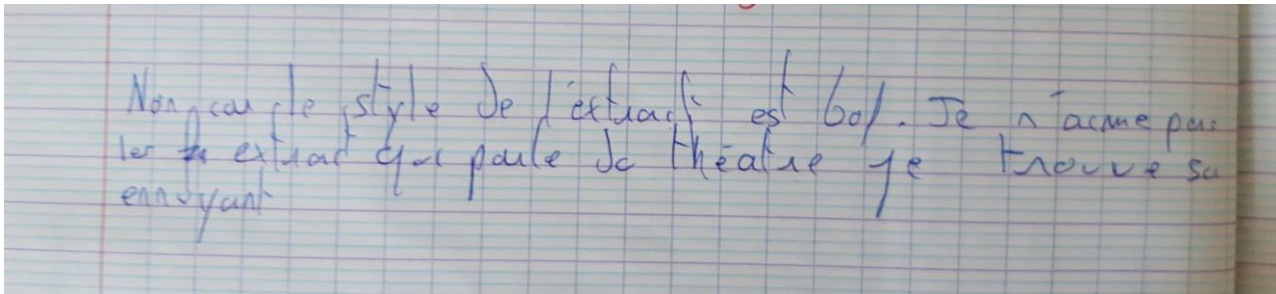 Non, car le style de l'extrait est bof. Je n'aime pas
les extrait qui parle de théatre je trouve sa
ennuyant